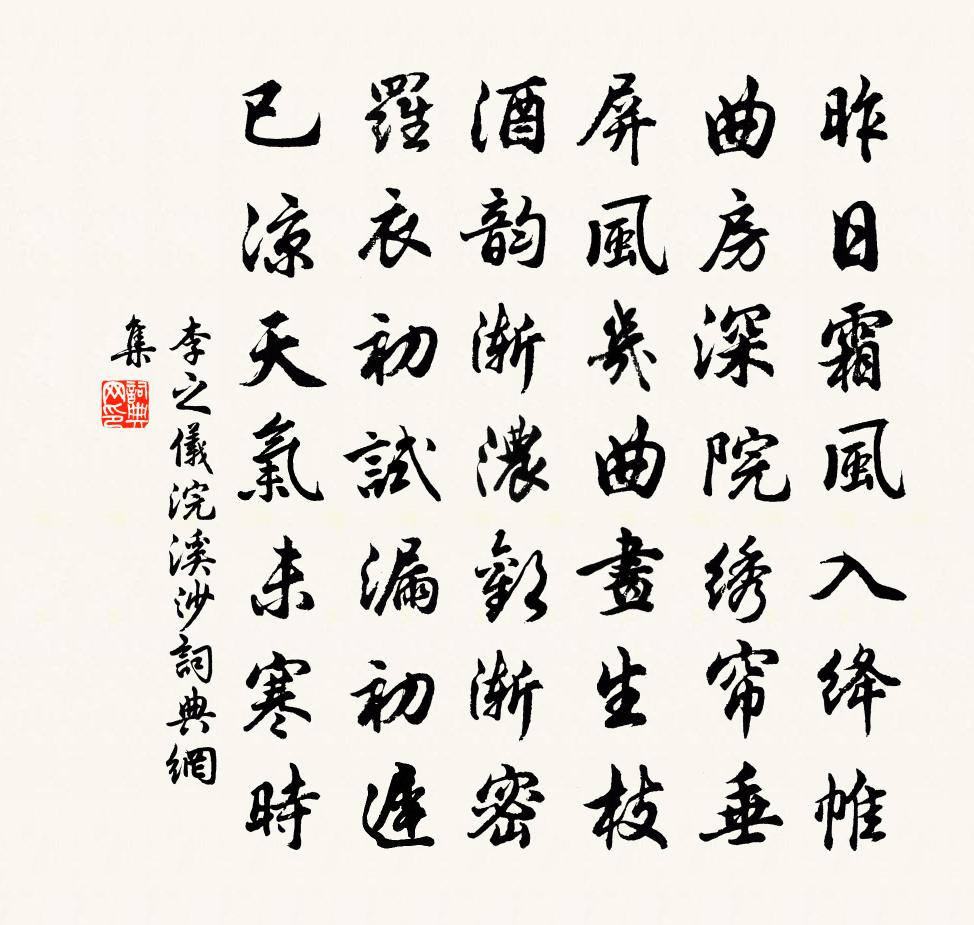 昨日霜風入絳帷
曲房深院绣帘垂
屏風幾曲畫生枝
酒韵漸濃歡漸密
羅衣初試漏初遲
已凉天氣未寒時
李之儀浣溪沙詞典網
集
詞典
网印